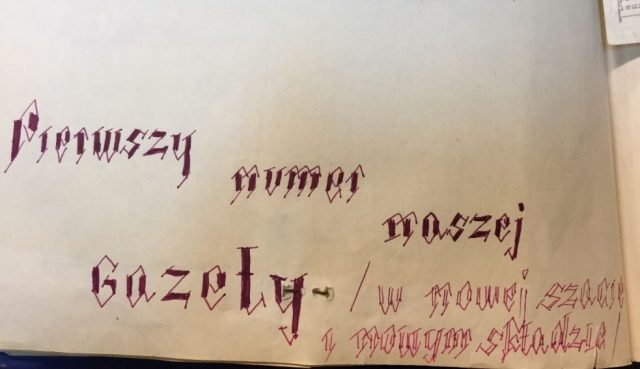 Pierwszy
numer
naszej
Gazety - / w nowej szacie
i nowym składzie/